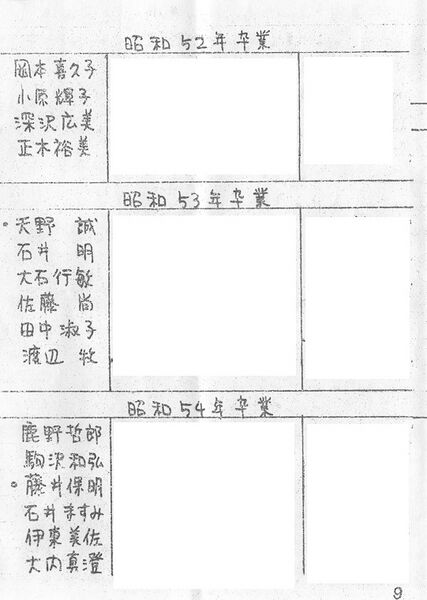 昭和52年卒業
岡本喜久子
小原輝子
深沢広美
正木裕美
昭和53年卒業
・天野 誠
石井 明
大石行敏
佐藤 尚
田中淑子
渡辺 牧
昭和54年卒業
鹿野哲郎
駒沢和弘
・藤井保明
石井ますみ
伊東美佐
大内真澄
9